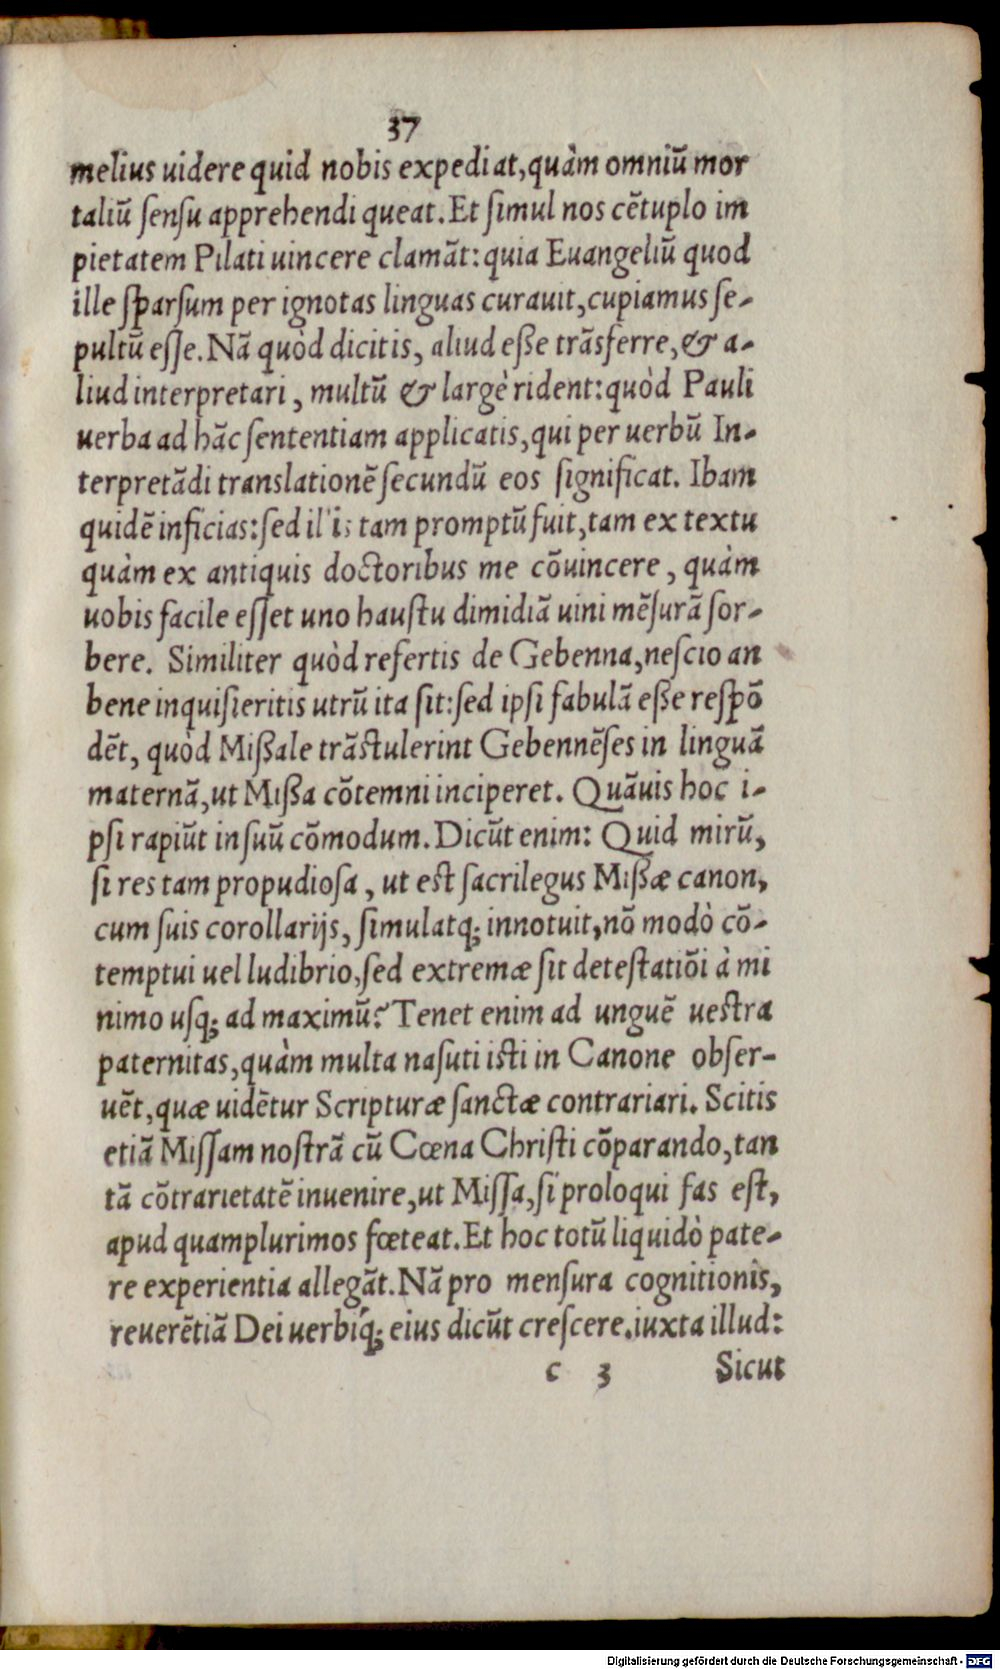 37
melius uidere quid nobis expediat, quàm omniũ mor
taliũ ſenſu apprehendi queat. Et ſimul nos cẽtuplo im
pietatem Pilati uincere clamãt: quia Euangeliũ quod
ille ſparſum per ignotas linguas curauit, cupiamus ſe-
pultũ eſſe. Nã quòd dicitis, aliud eße trãsferre, & a-
liud interpretari, multũ & largè rident: quòd Pauli
uerba ad hãc ſententiam applicatis, qui per uerbũ In-
terpretãdi translationẽ ſecundũ eos ſignificat. Ibam
quidẽ inficias: ſed illis tam promptũ fuit, tam ex textu
quàm ex antiquis doctoribus me cõuincere, quàm
uobis facile eſſet uno hauſtu dimidiã uini mẽſurã ſor-
bere. Similiter quòd refertis de Gebenna, neſcio an
bene inquiſieritis utrũ ita ſit: ſed ipſi fabulã eße reſpõ
dẽt, quòd Mißale trãſtulerint Gebennẽſes in linguã
maternã, ut Mißa cõtemni inciperet. Quãuis hoc i-
pſi rapiũt in ſuũ cõmodum. Dicũt enim: Quid mirũ,
ſi res tam propudioſa, ut eſt ſacrilegus Mißæ canon,
cum ſuis corollarijs, ſimulatq; innotuit, nõ modò cõ-
temptui uel ludibrio, ſed extremæ ſit deteſtatiõi à mi
nimo uſq; ad maximũ? Tenet enim ad unguẽ ueſtra
paternitas, quàm multa naſuti iſti in Canone obſer-
uẽt, quæ uidẽtur Scripturæ ſanctæ contrariari. Scitis
etiã Miſſam noſtrã cũ Cœna Chriſti cõparando, tan
tã cõtrarietatẽ inuenire, ut Miſſa, ſi proloqui fas eſt,
apud quamplurimos fœteat. Et hoc totũ liquidò pate-
re experientia allegãt. Nã pro menſura cognitionis,
reuerẽtiã Dei uerbiq́; eius dicũt creſcere. iuxta illud:
c 3 Sicut
Digitalisierung gefördert durch die Deutsche Forschungsgemeinschaft - DFG